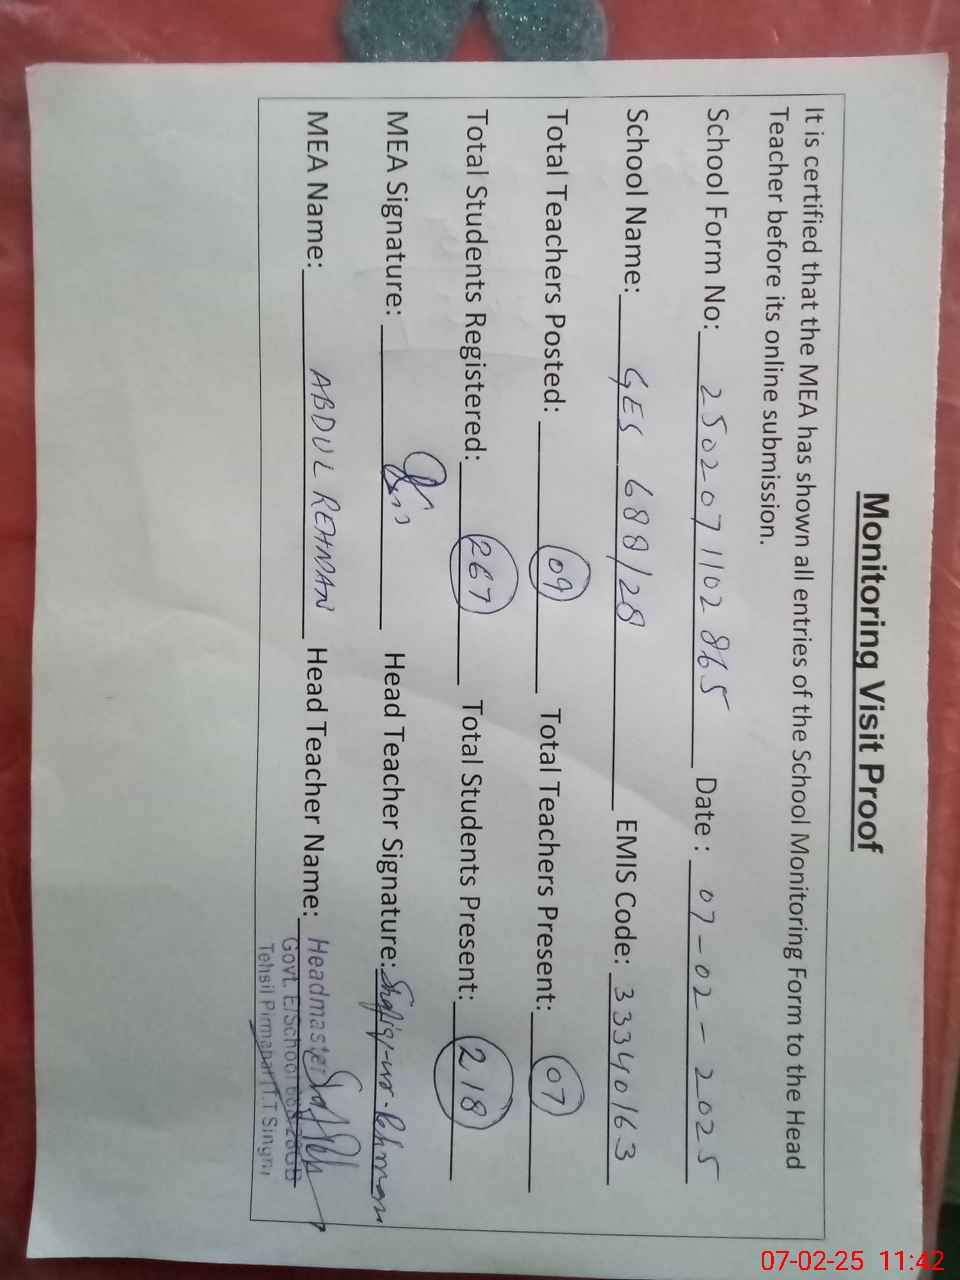 Monitoring Visit Proof
It is certified that the MEA has shown all entries of the School Monitoring Form to the Head
Teacher before its online submission.
School Form No: 250207 1102 865 Date : 07-02-2025
School Name: GES 688/28 EMIS Code: 33340163
Total Teachers Posted: 09 Total Teachers Present: 07
Total Students Registered: 267 Total Students Present: 218
MEA Signature: Head Teacher Signature: Shafiq-ur-Rhman
MEA Name: ABDUL REHMAN Head Teacher Name: Headmaster
Govt. E/School
Tehsil Pirmahal T.T Singh
07-02-25 11:42